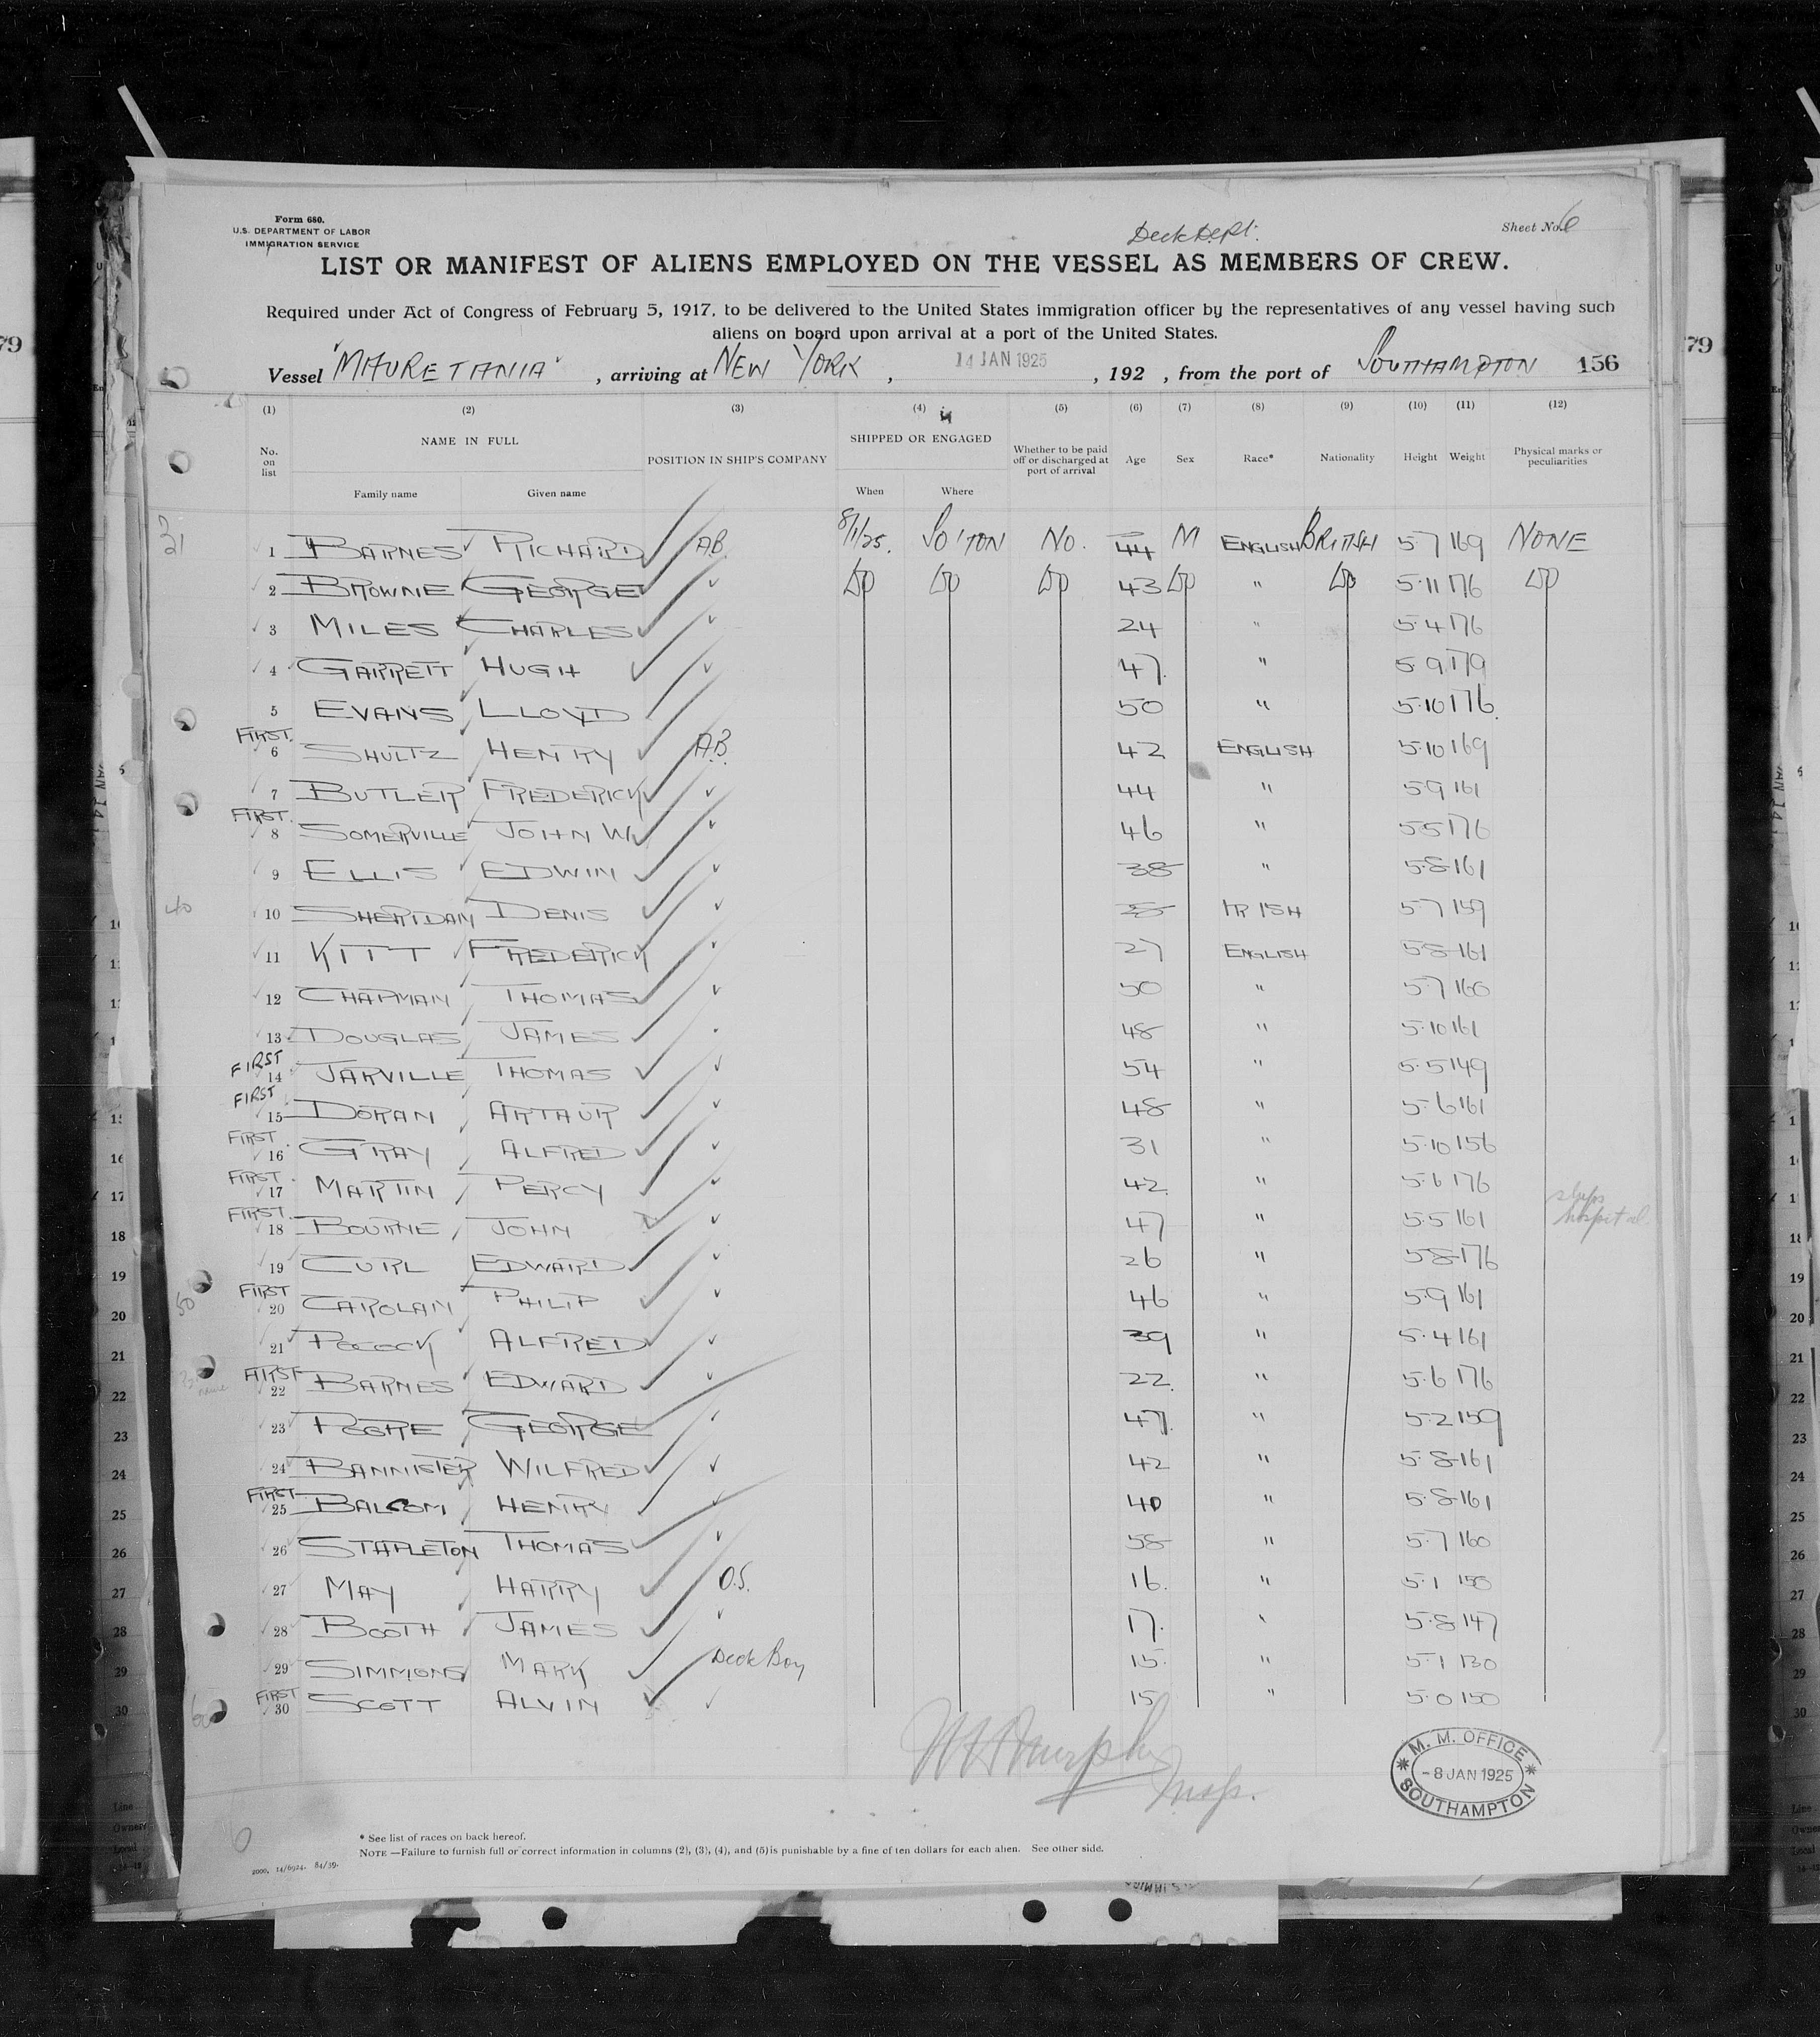 Form 680.
U.S. DEPARTMENT OF LABOR
IMMIGRATION SERVICE
Deck Dept.
Sheet No. 6
LIST OR MANIFEST OF ALIENS EMPLOYED ON THE VESSEL AS MEMBERS OF CREW.
Required under Act of Congress of February 5, 1917, to be delivered to the United States immigration officer by the representatives of any vessel having such
aliens on board upon arrival at a port of the United States.
Vessel "MAURETANIA", arriving at NEW YORK, 14 JAN 1925, 192 , from the port of SOUTHAMPTON 156
(1) (2) (3) (4) (5) (6) (7) (8) (9) (10) (11) (12)
No. on list NAME IN FULL POSITION IN SHIP'S COMPANY SHIPPED OR ENGAGED Whether to be paid off or discharged at port of arrival Age Sex Race* Nationality Height Weight Physical marks or peculiarities
Family name Given name When Where
31
1 BARNES RICHARD A.B. 8/1/25. SO'TON NO. 44 M ENGLISH BRITISH 5·7 169 NONE
2 BROWNE GEORGE ✓ DO DO DO 43 DO " DO 5·11 176 DO
3 MILES CHARLES ✓ 24 " 5·4 176
4 GARRETT HUGH ✓ 47. " 5·9 179
5 EVANS LLOYD 50 " 5·10 176.
FIRST. 6 SHULTZ HENRY A.B. 42 ENGLISH 5·10 169
7 BUTLER FREDERICK ✓ 44 " 5·9 161
FIRST. 8 SOMERVILLE JOHN W. ✓ 46 " 5·5 176
9 ELLIS EDWIN ✓ 38 " 5·8 161
40
10 SHERIDAN DENIS ✓ IRISH 5·7 159
11 KITT FREDERICK ✓ 27 ENGLISH 5·8 161
12 CHAPMAN THOMAS ✓ 50 " 5·7 160
13 DOUGLAS JAMES 48 " 5·10 161
FIRST 14 JARVILLE THOMAS ✓ 54 " 5·5 149
FIRST 15 DORAN ARTHUR ✓ 48 " 5·6 161
FIRST. 16 GRAY ALFRED ✓ 31 " 5·10 156
FIRST. 17 MARTIN PERCY ✓ 42. " 5·6 176
FIRST. 18 BOURNE JOHN ✓ 47 " 5·5 161 ships hospital
19 CURL EDWARD ✓ 26 " 5·8 176
50
FIRST 20 CAROLAN PHILIP ✓ 46 " 5·9 161
21 POCOCK ALFRED ✓ 39 " 5·4 161
FIRST 22 BARNES EDWARD ✓ 22. " 5·6 176
23 POORE GEORGE ✓ 47. " 5·2 159
24 BANNISTER WILFRED ✓ 42 " 5·8 161
FIRST 25 BALSOM HENRY ✓ 40 " 5·8 161
26 STAPLETON THOMAS ✓ 58 " 5·7 160
27 MAY HARRY O.S. 16. " 5·1 150
28 BOOTH JAMES ✓ 17. " 5·8 147
29 SIMMONS MARK Deck Boy 15. " 5·1 130
60
FIRST 30 SCOTT ALVIN ✓ 15 " 5·0 150
Murphy
Insp.
M. M. OFFICE
-8 JAN 1925
SOUTHAMPTON
6
* See list of races on back hereof.
NOTE —Failure to furnish full or correct information in columns (2), (3), (4), and (5) is punishable by a fine of ten dollars for each alien. See other side.
2000. 14/6924. 84/39.